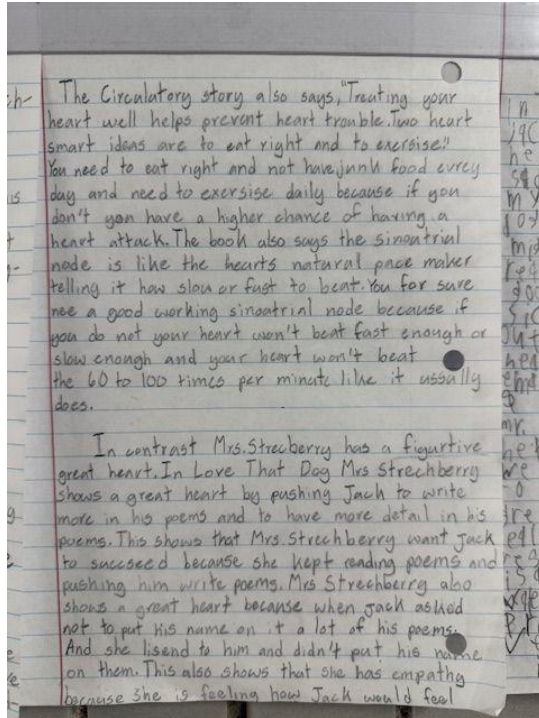 The Circulatory story also says, "Treating your
heart well helps prevent heart trouble. Two heart
smart ideas are to eat right and to exersise."
You need to eat right and not have junk food evrey
day and need to excersise daily because if you
don't you have a higher chance of having a
heart attack. The book also says the sinoatrial
node is like the hearts natural pace maker
telling it how slow or fast to beat. You for sure
nee a good working sinoatrial node because if
you do not your heart won't beat fast enough or
slow enough and your heart won't beat
the 60 to 100 times per minute like it ussally
does.
In contrast Mrs. Strecberry has a figurtive
great heart. In Love That Dog Mrs Strechberry
shows a great heart by pushing Jack to write
more in his poems and to have more detail in his
poems. This shows that Mrs. Strechberry want Jack
to succseed because she kept reading poems and
pushing him write poems. Mrs Strechberry also
shows a great heart because when Jack asked
not to put his name on it a lot of his poems.
And she lisend to him and didn't put his name
on them. This also shows that she has empathy
because she is feeling how Jack would feel